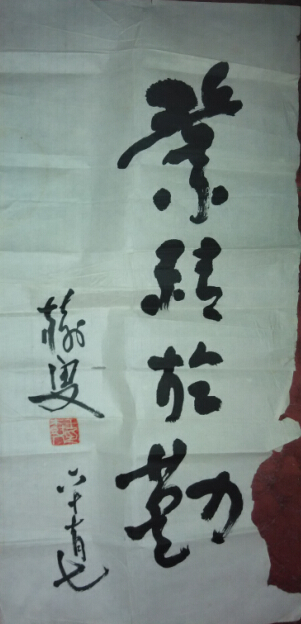 業精於勤
叟
六十有七